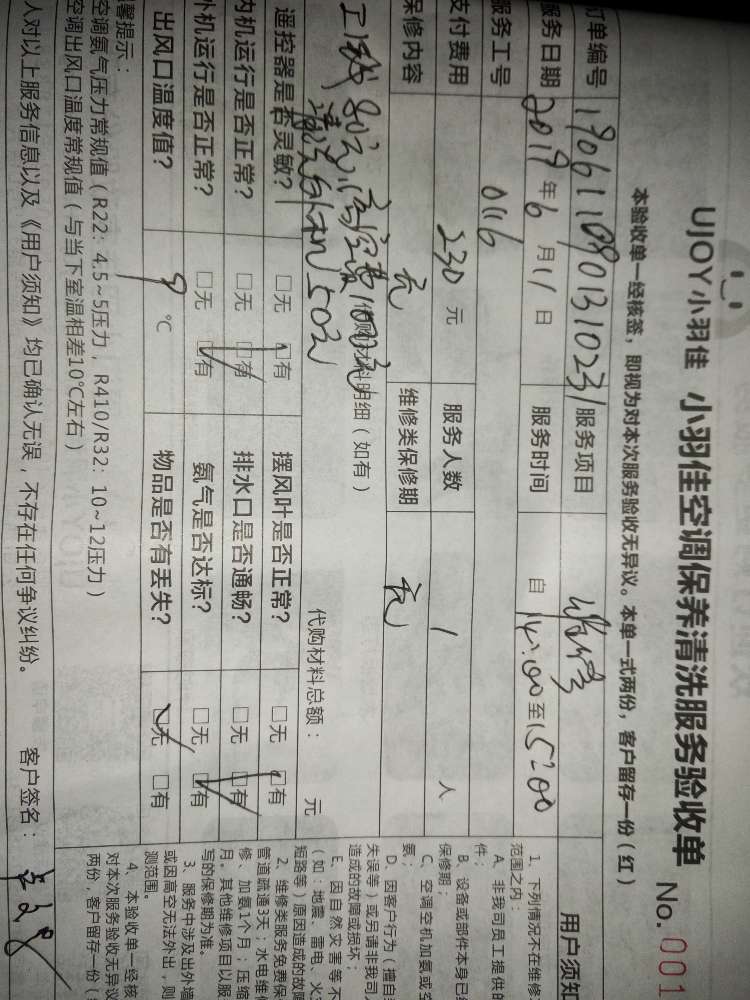 UJOY小羽佳 小羽佳空调保养清洗服务验收单 No.001
本验收单一经核签，即视为对本次服务验收无异议。本单一式两份，客户留存一份（红）
订单编号 1906110901310231 服务项目
服务日期 2019年6月11日 服务时间 自14:00至15:00
服务工号 0116
支付费用 230元 服务人数 1人
保修内容 无 维修类保修期 无
代购材料明细（如有） 代购材料总额： 元
工钱80元，高空费100元
清洗外机50元
遥控器是否灵敏？ □无 □有 摆风叶是否正常？ □无 □有
内机运行是否正常？ □无 □有 排水口是否通畅？ □无 □有
外机运行是否正常？ □无 □有 氨气是否达标？ □无 □有
出风口温度值？ 9℃ 物品是否有丢失？ □无 □有
馨提示：
空调氨气压力常规值（R22：4.5~5压力，R410/R32：10~12压力）
空调出风口温度常规值（与当下室温相差10℃左右）
人对以上服务信息以及《用户须知》均已确认无误，不存在任何争议纠纷。 客户签名：
用户须知
1、下列情况不在维修
范围之内：
A、非我司员工提供的
件；
B、设备或部件本身已经
保修期；
C、空调空机加氨或空
氨；
D、因客户行为（擅自
失误等）或另请非我司人
造成的故障或损坏；
E、因自然灾害等不
（如：地震、雷电、火灾
短路等）原因造成的故障
2、维修类服务免费保
管道疏通3天；水电维修
修、加氨1个月；压缩
月。其他维修项目以服
写的保修期为准。
3、服务中涉及出外墙
或因高空无法外出，则
测范围。
4、本验收单一经核
对本次服务验收无异议
两份，客户留存一份（红